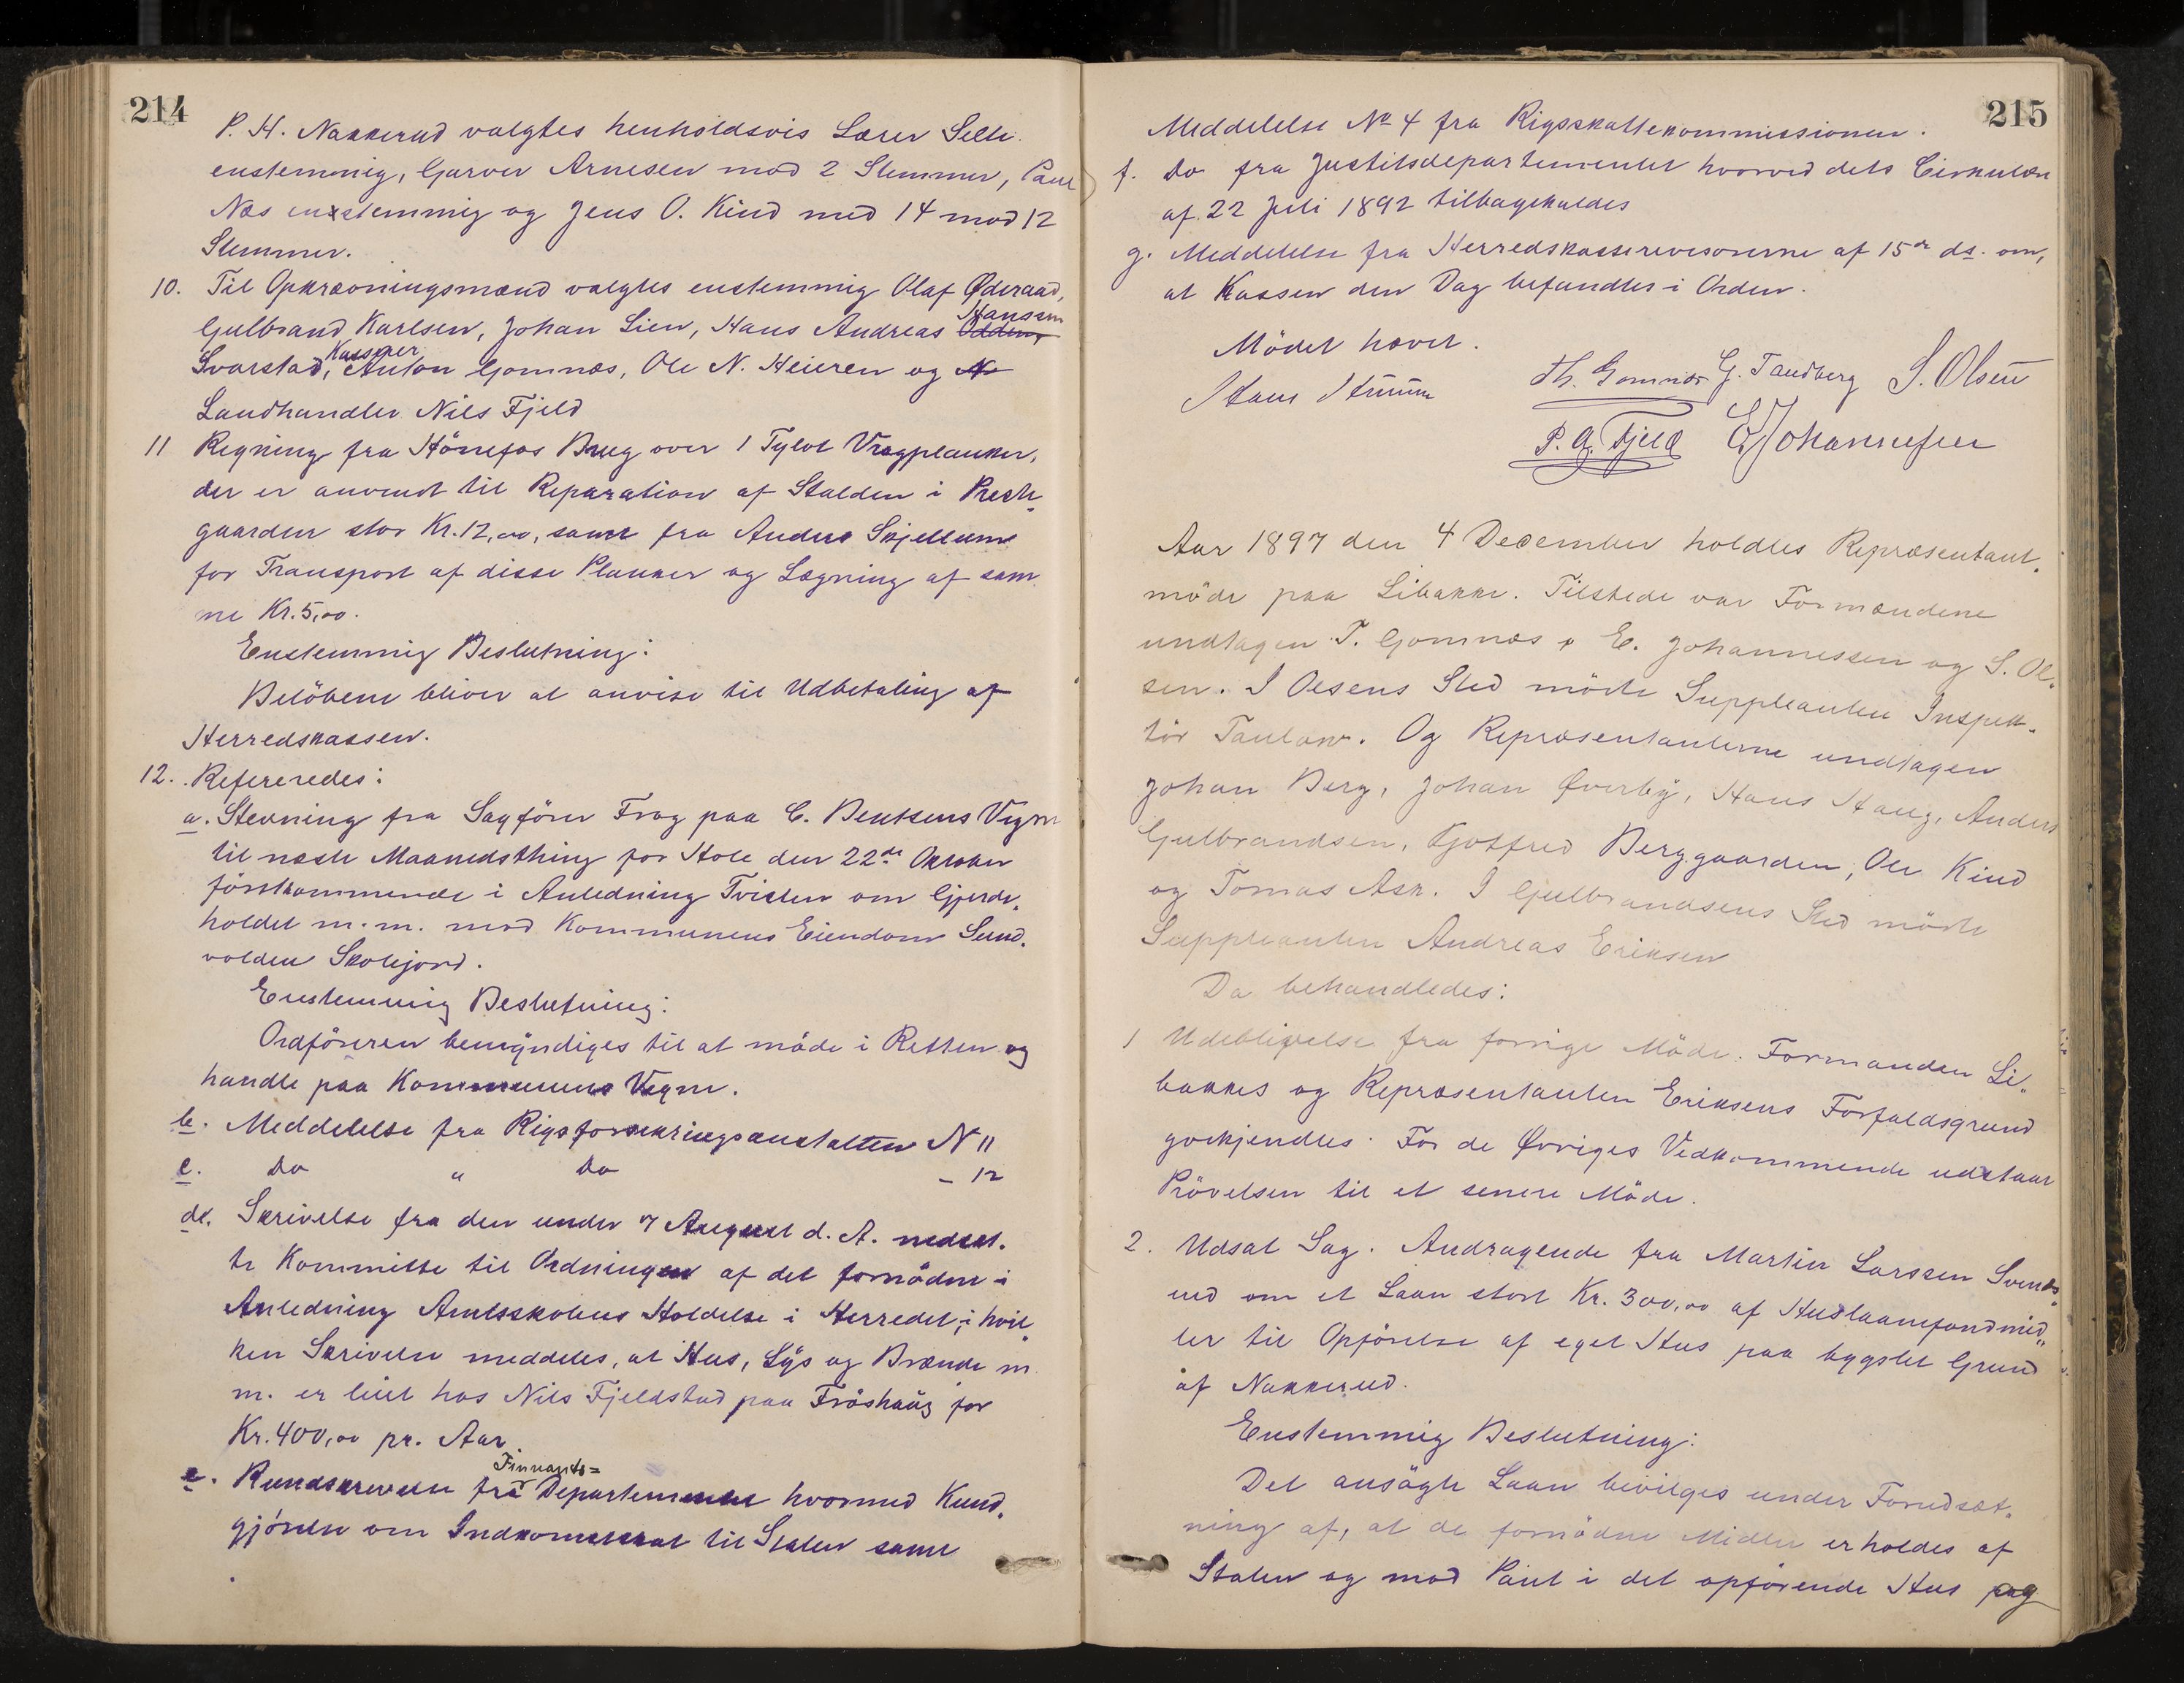 214
P. H. Nakkerud valgtes henholdsvis Lærer Selte
enstemmig, Garver Arnesen mod 2 Stemmer, Paul
Næs enstemmig og Jens O. Kind med 14 mod 12
Stemmer.
10. Til Opkrævningsmænd valgtes enstemmig Olaf Øderaad,
Gulbrand Karlsen, Johan Lien, Hans Andreas Hanssen
Svarstad, Kasser Anton Gomnæs, Ole N. Heieren og
Landhandler Nils Fjeld
11 Regning fra Hönefos Brug over 1 Tylvt Vragplanker,
der er anvendt til Reparation af Stalden i Preste-
gaarden stor Kr. 12,00, samt fra Anders Skjellum
for Transport af disse Planker og Lægning af sam
me Kr. 5,00.
Enstemmig Beslutning:
Belöbene bliver at anvise til Udbetaling af
Herredskassen.
12. Refereredes:
a. Stevning fra Sagförer Frog paa C. Bentsens Vegne
til næste Maanedsthing for Hole den 22de Oktober
förstkommende i Anledning Tvisten om Gjerde-
holdet m. m. mod Kommunens Eiendom Sund-
volden Skolejord.
Enstemmig Beslutning:
Ordföreren bemyndiges til at möde i Retten og
handle paa Kommunens Vegne.
b. Meddelelse fra Rigsforsekringsanstalten N 11
c. Do " Do - 12
d. Skrivelse fra den under 7 August d. A. nedsat-
te Kommitte til Ordningen af det fornödne i
Anledning Amtsskolens Holdelse i Herredet, i hvil-
ken Skrivelse meddeles, at Hus, Lys og Brænde m
m. er leiet hos Nils Fjeldstad paa Fröshaug for
Kr. 400,00 pr. Aar
e. Rundskrivelse fra Finnants= Departementet hvormed Kund-
gjörelse om Indkomstskat til Staten samt
215
Meddelelse No 4 fra Rigsskattekommissionen.
f. Do fra Justitsdepartementet hvorved dets Cirkulære
af 22 Juli 1892 tilbagekaldes
g. Meddelelse fra Herredskasserevisorerne af 15de ds. om,
at Kassen den Dag befandtes i Orden.
Mödet hævet.
Th. Gomnæs G. Tandberg S. Olsen
Hans
P. A. Fjeld E Johannesen
Aar 1897 den 4 December holdtes Repræsentant-
möde paa Libakke. Tilstede var Formændene
undtagen T. Gomnæs, E. Johannessen og S. Ol-
sen. I Olsens Sted mödte Suppleanten Inspek-
tör Taulow. Og Repræsentanterne undtagen
Johan Berg, Johan Överby, Hans Haug, Anders
Gulbrandsen, Gotfred Berggaarden, Ole Kind
og Tomas Ask. I Gulbrandsens Sted mödte
Suppleanten Andreas Eriksen
Da behandledes:
1 Udeblivelse fra forrige Möde. Formanden Li-
bakkes og Repræsentanten Eriksens Forfaldsgrund
godkjendtes. For de Øvriges Vedkommende udstaar
Prövelsen til et senere Möde.
2. Udsat Sag. Andragende fra Martin Larssen Svends-
ud om et Laan stort Kr. 300,00 af Huslaanefondmid-
ler til Opförelse af eget Hus paa bygslet Grund
af Nakkerud.
Enstemmig Beslutning:
Det ansögte Laan bevilges under Forudsæt-
ning af, at de fornödne Midler erholdes af
Staten og mod Pant i det opförende Hus og